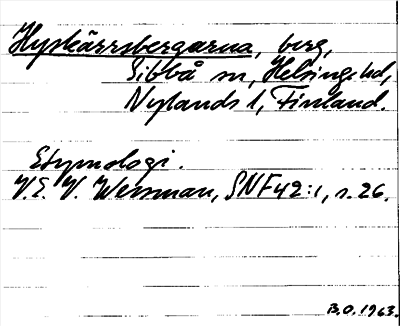 Hyskärrsbergarna, berg,
Sibbå sn, Helsinge hd,
Nylands l, Finland.
Etymologi.
V.E.V. Wessman, SNF 42:1, s. 26.
B.O. 1963.